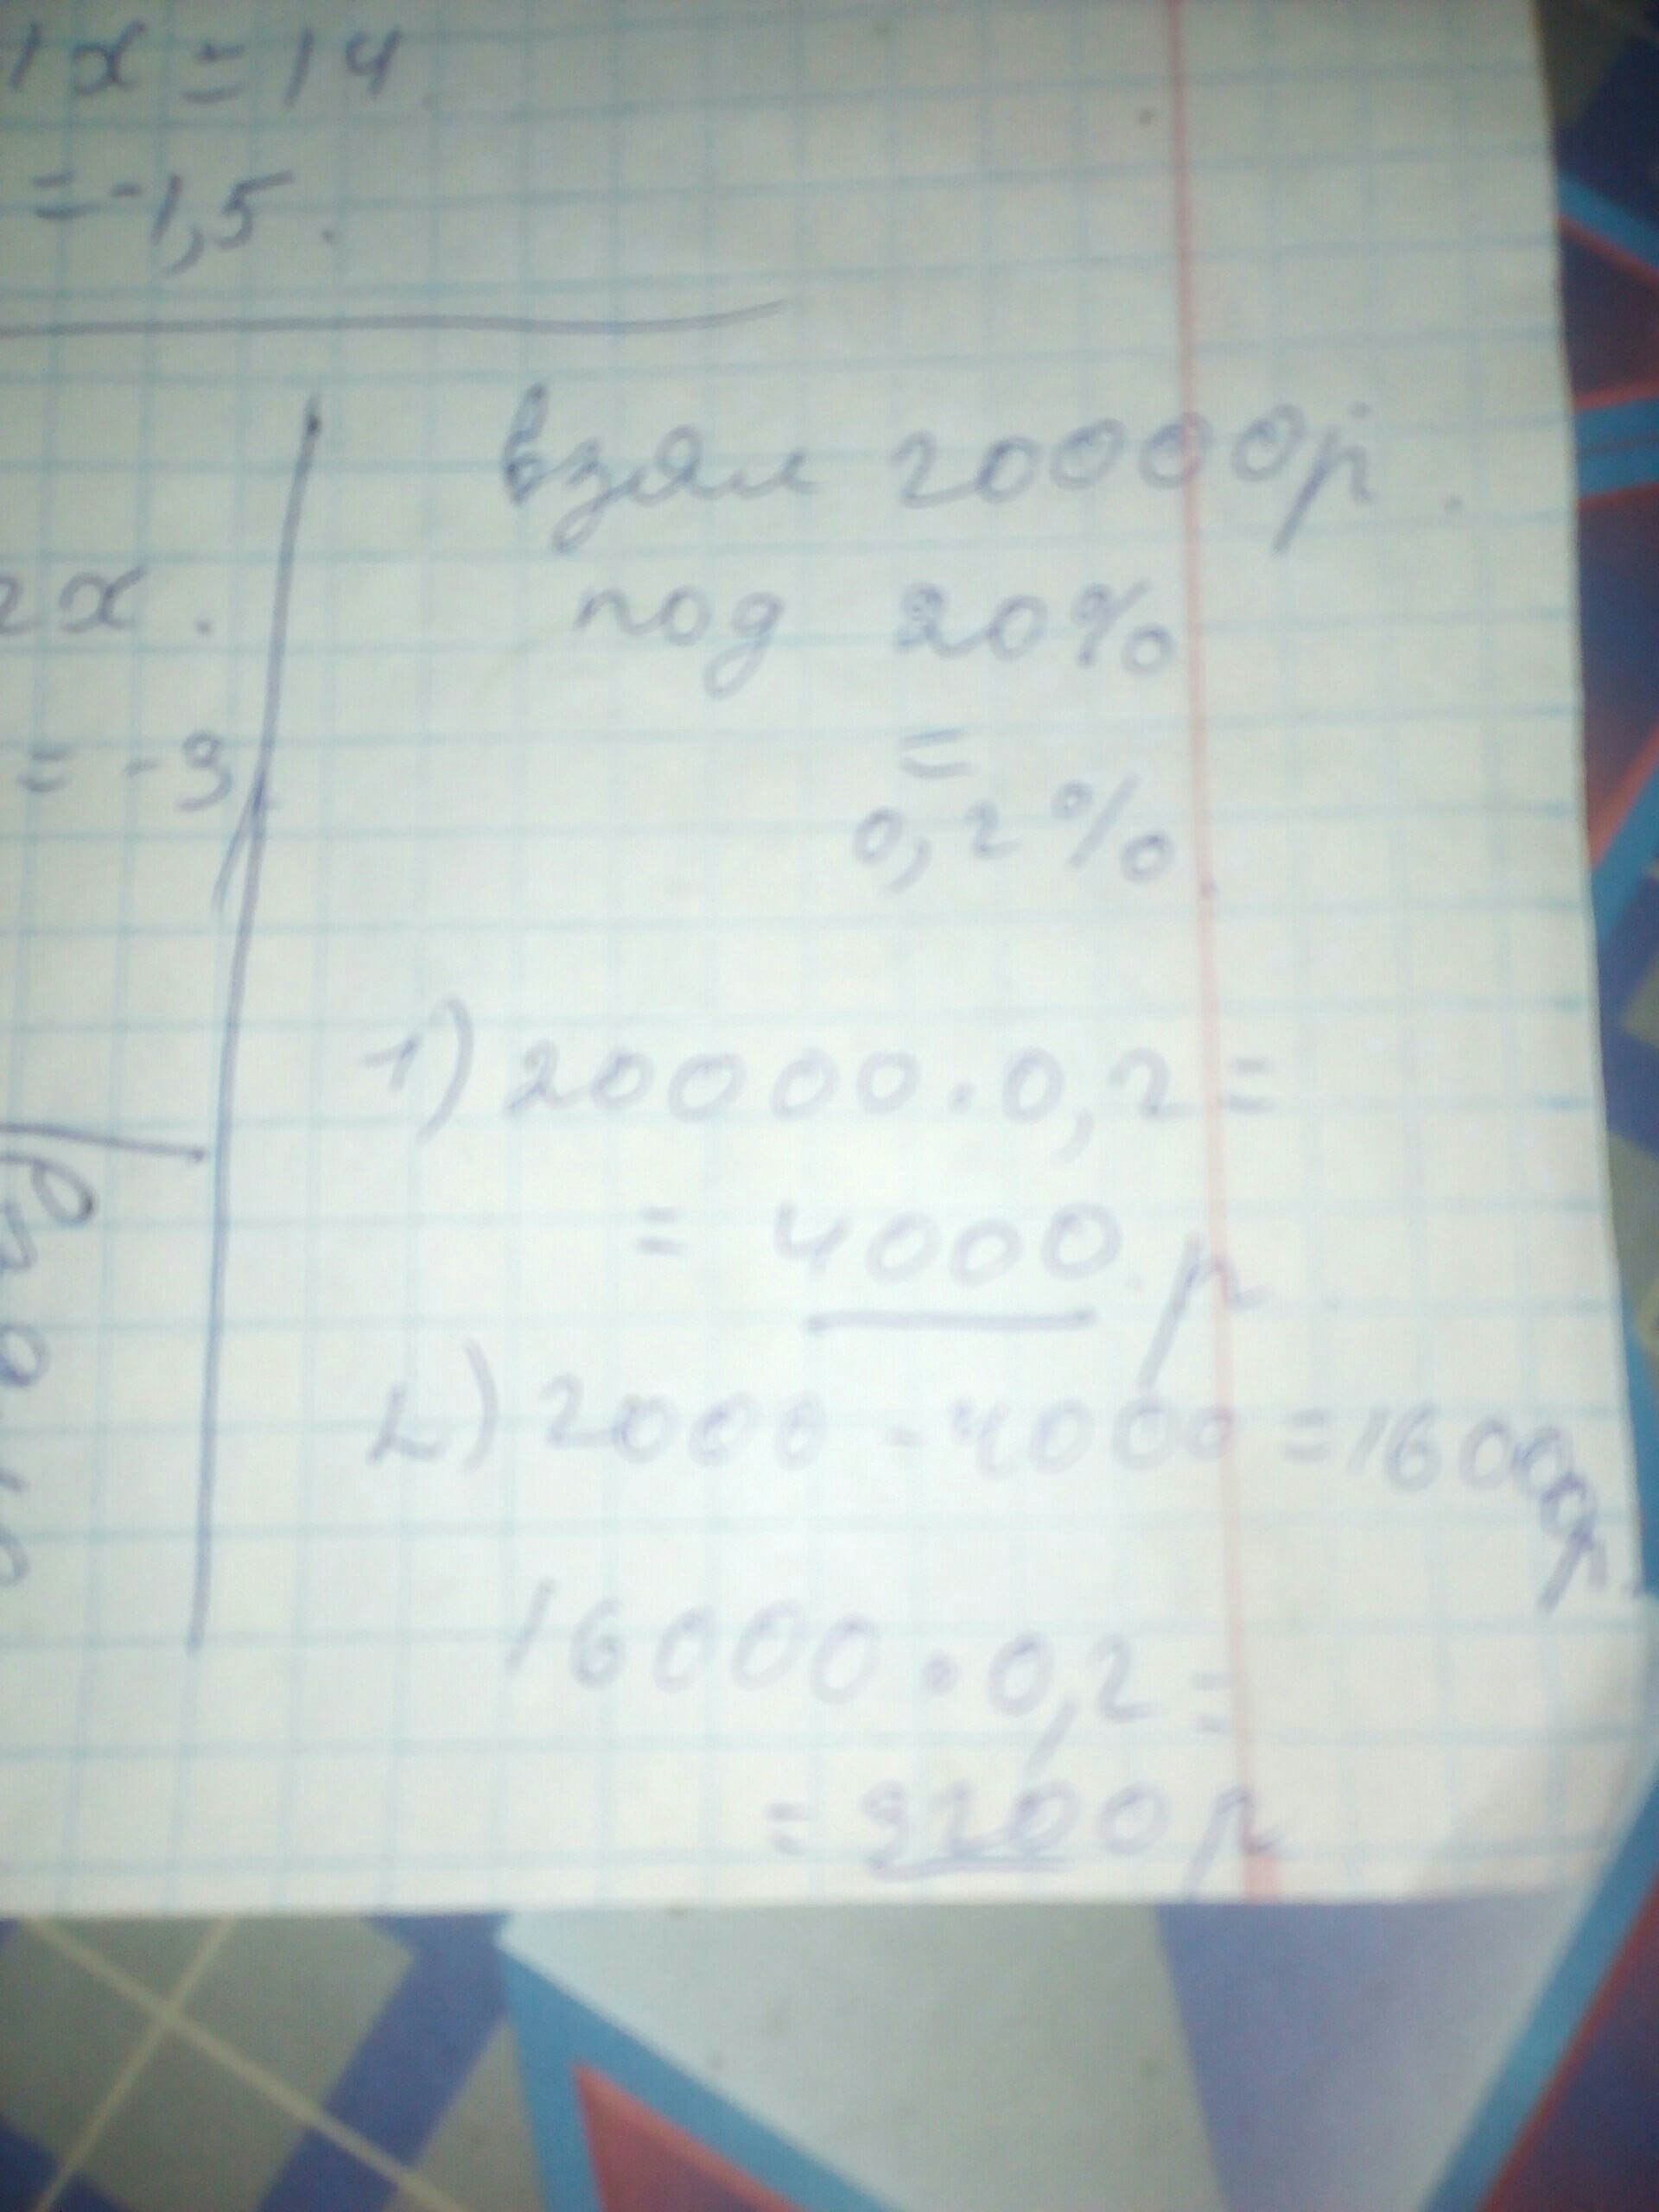 x = 14
= -1,5.
взял 20000р.
под 20%
2x.
=
= -3
0,2%.
1) 20000 · 0,2 =
= 4000 р
2) 2000 - 4000 = 16000р.
16000 · 0,2 =
= 3200 р